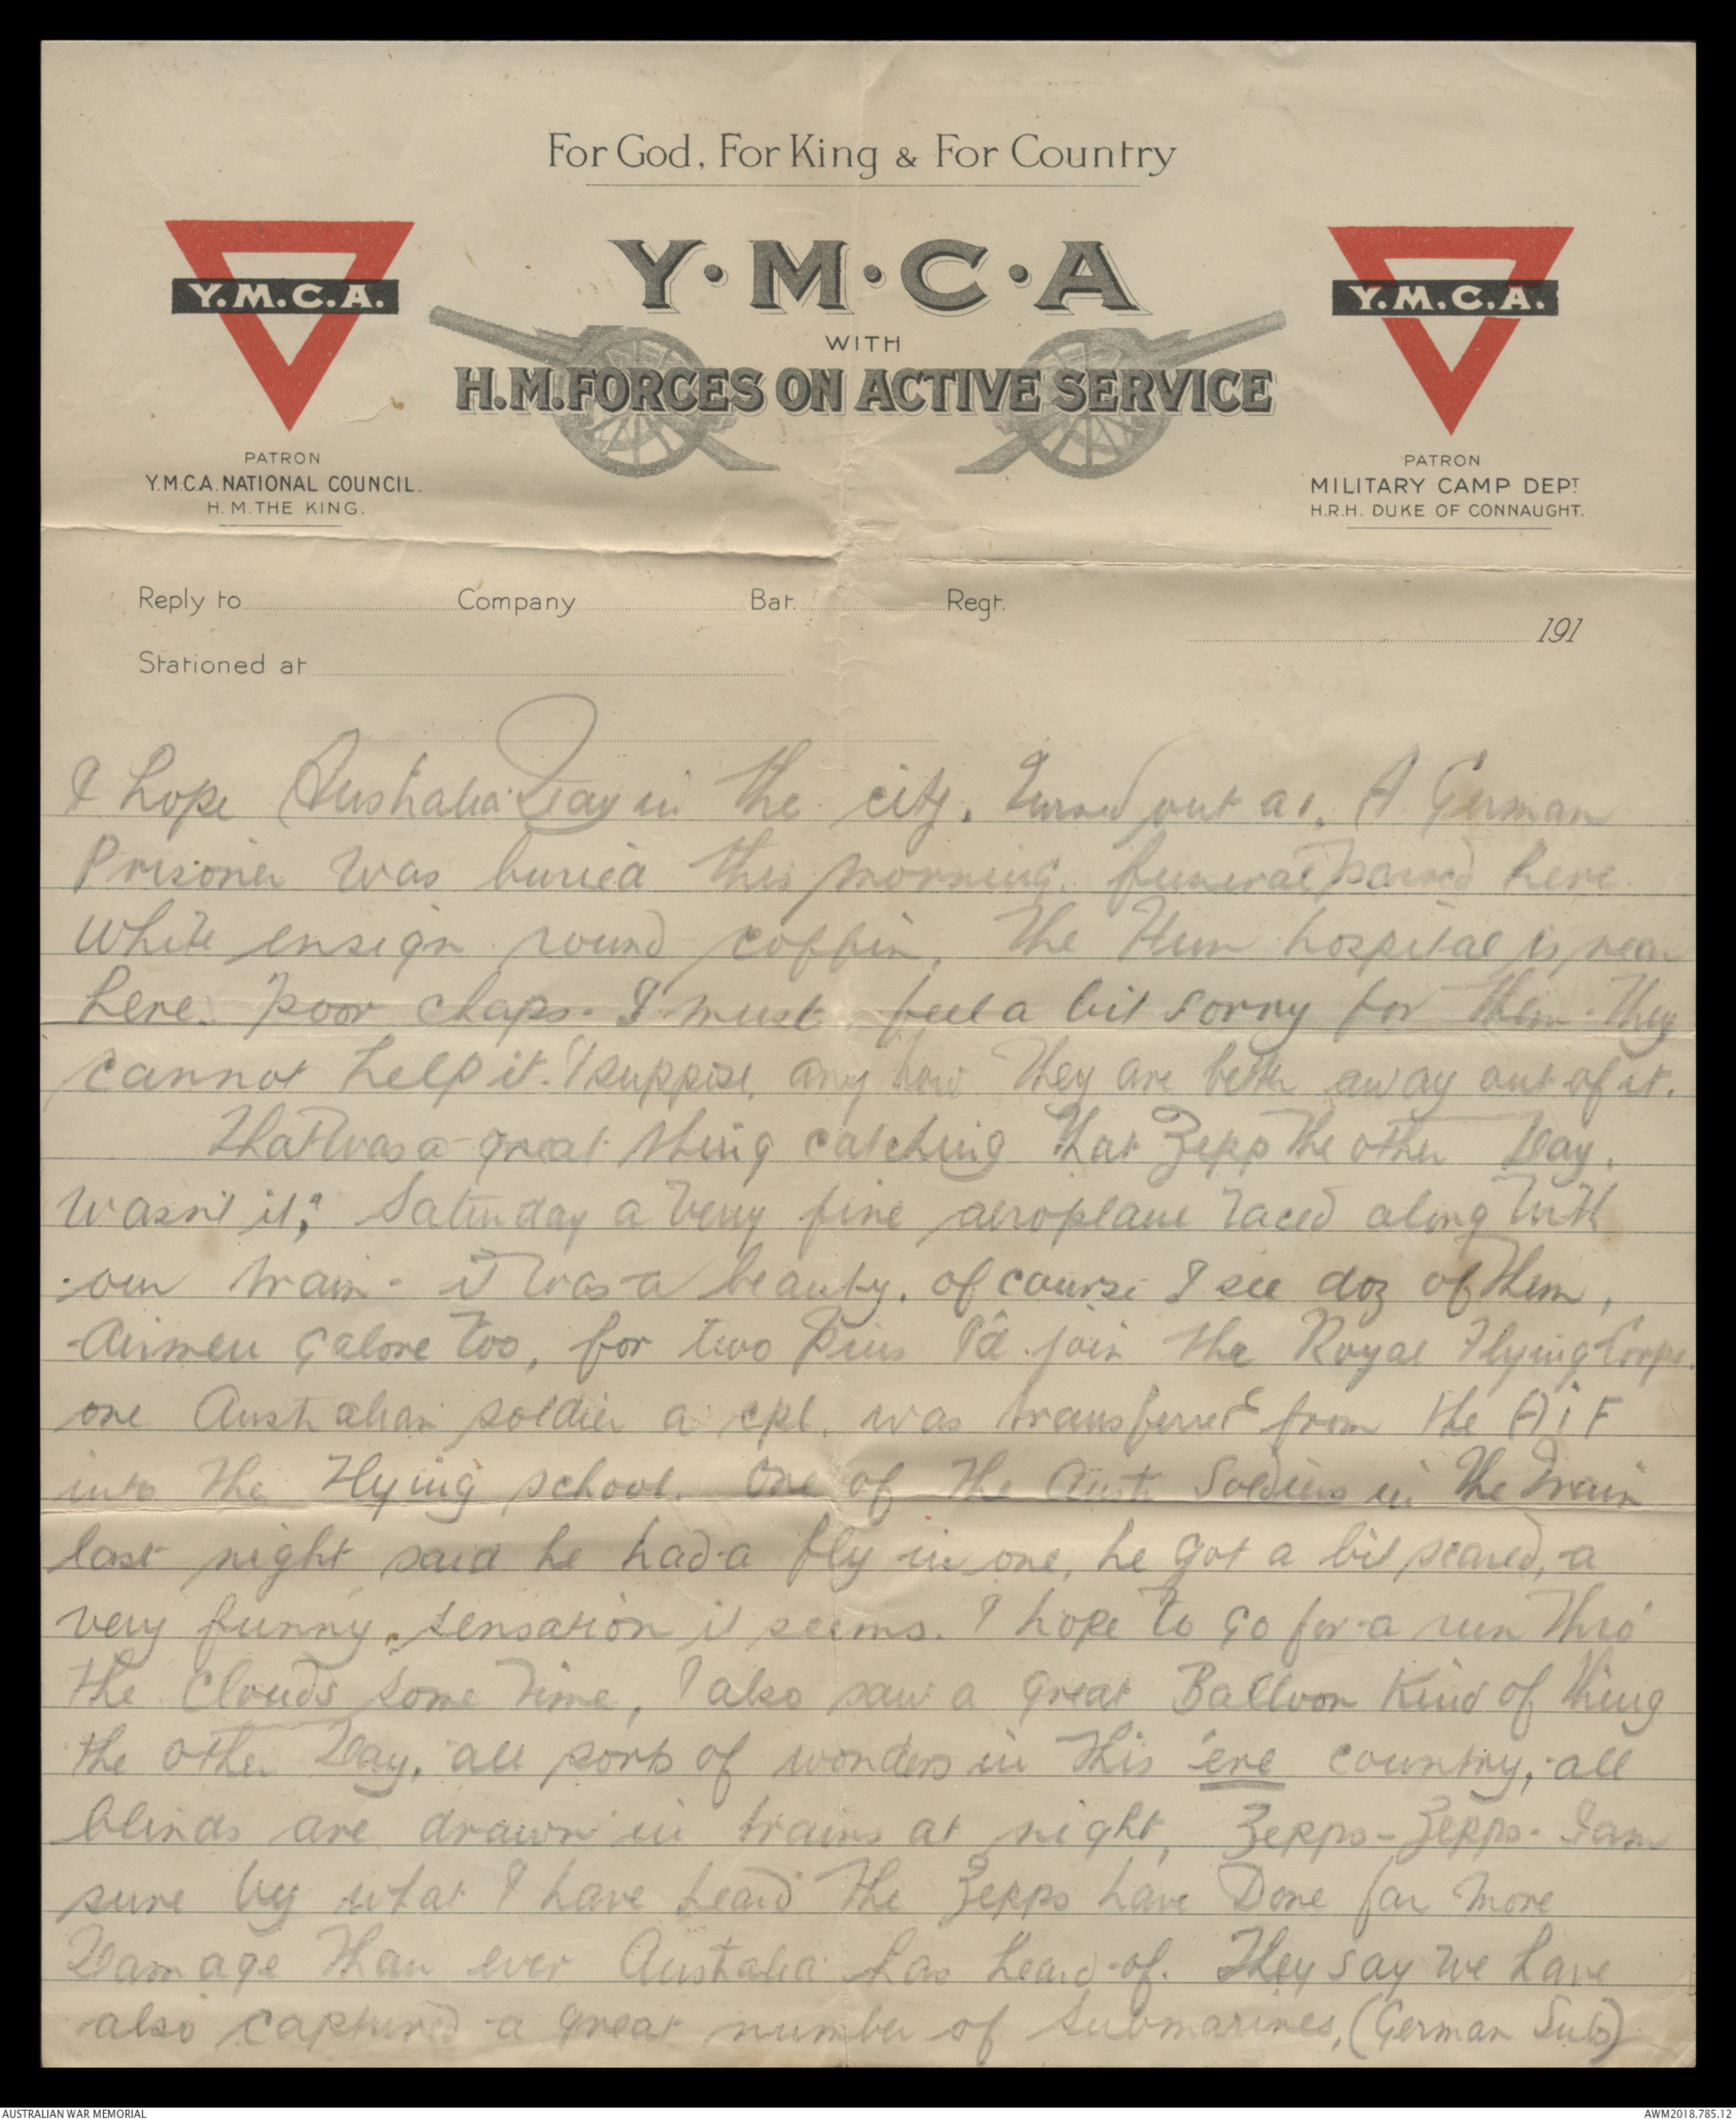 For God, For King & For Country
Y.M.C.A.
Y·M·C·A
Y.M.C.A.
WITH
H.M. FORCES ON ACTIVE SERVICE
PATRON
Y.M.C.A. NATIONAL COUNCIL.
H.M. THE KING.
PATRON
MILITARY CAMP DEPT
H.R.H. DUKE OF CONNAUGHT.
Reply to Company Bat. Regt.
191
Stationed at
I hope Australia Day in the city. Turned out a1. A German
Prisoner was buried this morning. funeral passed here.
White ensign round coffin. The Hun hospital is near
here. poor chaps. I must feel a bit sorry for them. They
cannot help it. I suppose, any how they are better away out of it.
That was a great thing catching that Zepp the other Day.
Wasn't it? Saturday a very fine aeroplane raced along with
our train - it was a beauty. of course I see doz of them,
Airmen galore too, for two Pins I'd join the Royal Flying Corps.
one Australian soldier a cpl. was transferred from the AIF
into the Flying school. One of the Aust. Soldiers in the train
last night said he had a fly in one, he got a bit scared, a
very funny sensation it seems. I hope to go for a run thro'
the clouds some time, I also saw a great Balloon Kind of thing
the other Day. all sorts of wonders in this 'ere country, all
blinds are drawn in trains at night, Zepps - Zepps - I am
sure by what I have heard the Zepps have Done far more
Damage than ever Australia has heard of. They say we have
also captured a great number of submarines, (German Subs)
AUSTRALIAN WAR MEMORIAL
AWM2018.785.12